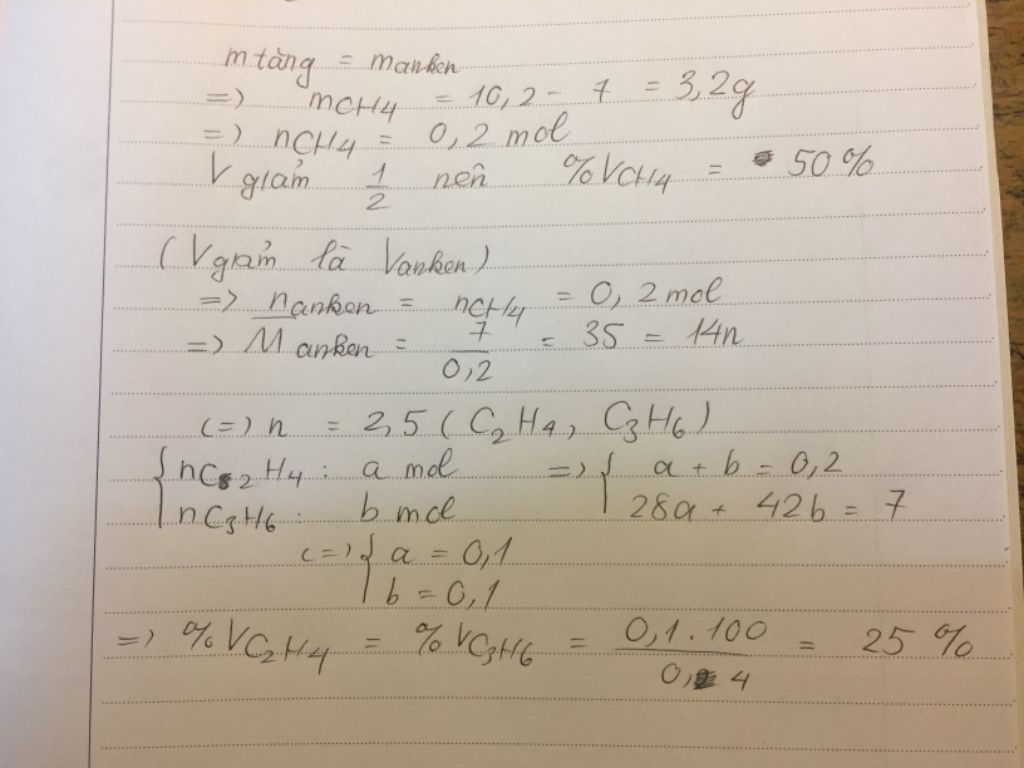 m tăng = manken
=> mCH4 = 10,2 - 7 = 3,2g
=> nCH4 = 0,2 mol
V giảm 1/2 nên %VCH4 = 50%
(Vgiảm là Vanken)
=> nanken = nCH4 = 0,2 mol
=> M anken = 7/0,2 = 35 = 14n
(=) n = 2,5 (C2H4, C3H6)
{ nC2H4 : a mol => { a + b = 0,2
nC3H6 : b mol 28a + 42b = 7
(=) { a = 0,1
b = 0,1
=> %VC2H4 = %VC3H6 = 0,1.100/0,4 = 25%